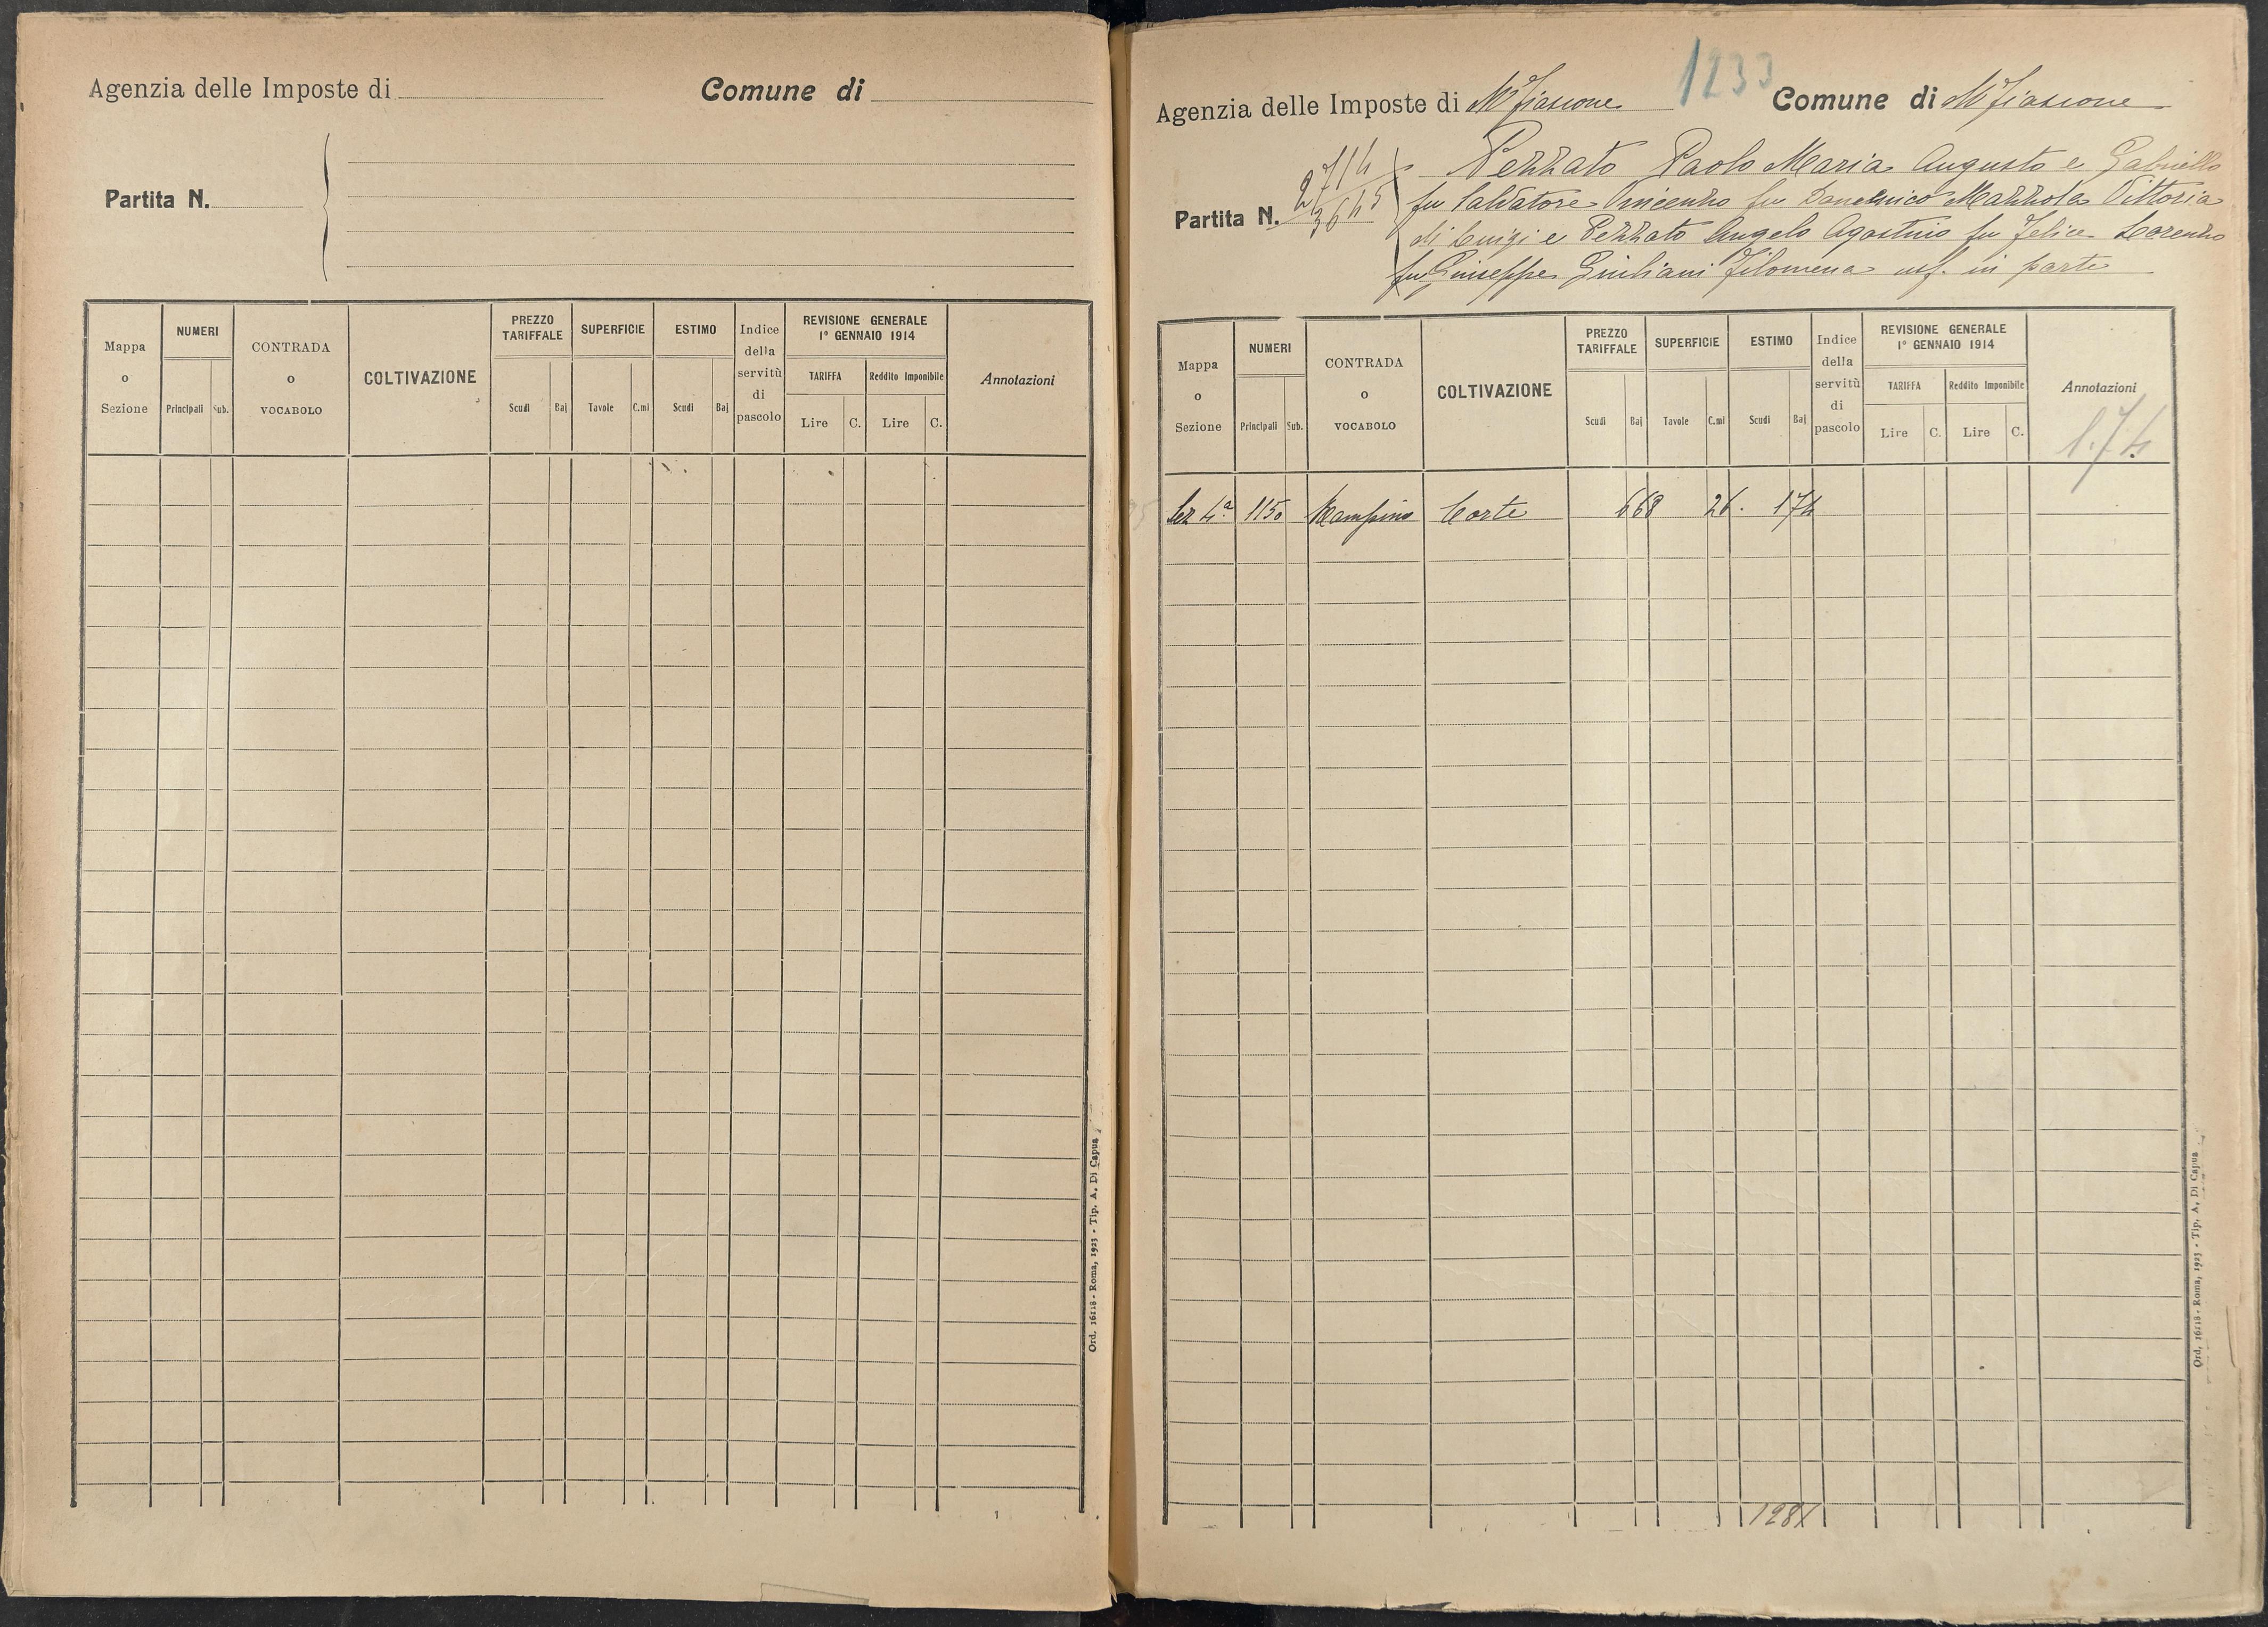 Agenzia delle Imposte di
Comune di
Partita N.
Mappa o Sezione
NUMERI
Principali
Sub.
CONTRADA o VOCABOLO
COLTIVAZIONE
PREZZO TARIFFALE
Scudi
Baj
SUPERFICIE
Tavole
C.mi
ESTIMO
Scudi
Baj
Indice della servitù di pascolo
REVISIONE GENERALE
1º GENNAIO 1914
TARIFFA
Lire
C.
Reddito Imponibile
Lire
C.
Annotazioni
Ord. 16118 - Roma, 1923 - Tip. A. Di Capua
1233
Agenzia delle Imposte di Mᵗᵉ fiascone
Comune di Mᵗᵉ fiascone
Partita N. 2714
3645
Pezzato Paolo Maria Augusto e Gabriello
fu Salvatore Vincenzo fu Domenico Mazzola Vittoria
di Luigi e Pezzato Angelo Agostino fu Felice Lorenzo
fu Giuseppe Giuliani Filomena usf. in parte
Mappa o Sezione
NUMERI
Principali
Sub.
CONTRADA o VOCABOLO
COLTIVAZIONE
PREZZO TARIFFALE
Scudi
Baj
SUPERFICIE
Tavole
C.mi
ESTIMO
Scudi
Baj
Indice della servitù di pascolo
REVISIONE GENERALE
1º GENNAIO 1914
TARIFFA
Lire
C.
Reddito Imponibile
Lire
C.
Annotazioni
1.74
Sez 4ª 1150 Corte 668 26. 174
Ord. 16118 - Roma, 1923 - Tip. A. Di Capua